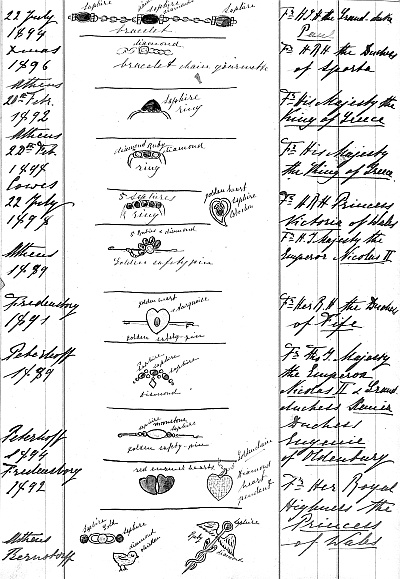 22 July
1894
sapphire
sapphire
bracelet
Fr H.I.H the Grand duke
Paul
Xmas
1896
diamond
bracelet chain gourmette
Fr H R H the Duchess
of Sparta
Athens
1892
sapphire
ring
Fr His Majesty the
King of Greece
Athens
diamond ruby diamond
ring
Fr His Majesty
the King of Greece
Cowes
22 July
5 saphires
ring
golden heart
saphire
Fr H R H Princess
Victoria of Wales
Athens
1889
5 Rubies & diamond
Golden safety pin
Fr H. I. Majesty the
Emperor Nicolas II
Fredensborg
1891
golden heart
turquoise
golden safety-pin
Fr Her R H the Duchess
of Fife
Peterhoff
1889
saphire
saphire
diamond
Fr Th I. Majesty
the Emperor
Nicolas II & Grand
duchess Xenia
Peterhoff
1894
moonstone
saphire
golden safety-pin
Duchess
Eugenie
of Oldenburg
Fredensborg
1892
red enamel hearts
Golden chain
Diamond
heart
pendent
Fr Her Royal
Highness the
Princess
of Wales
Athens
Bernstorff
Saphire
Gold
Saphire
diamond
Ruby
Saphire
diamond